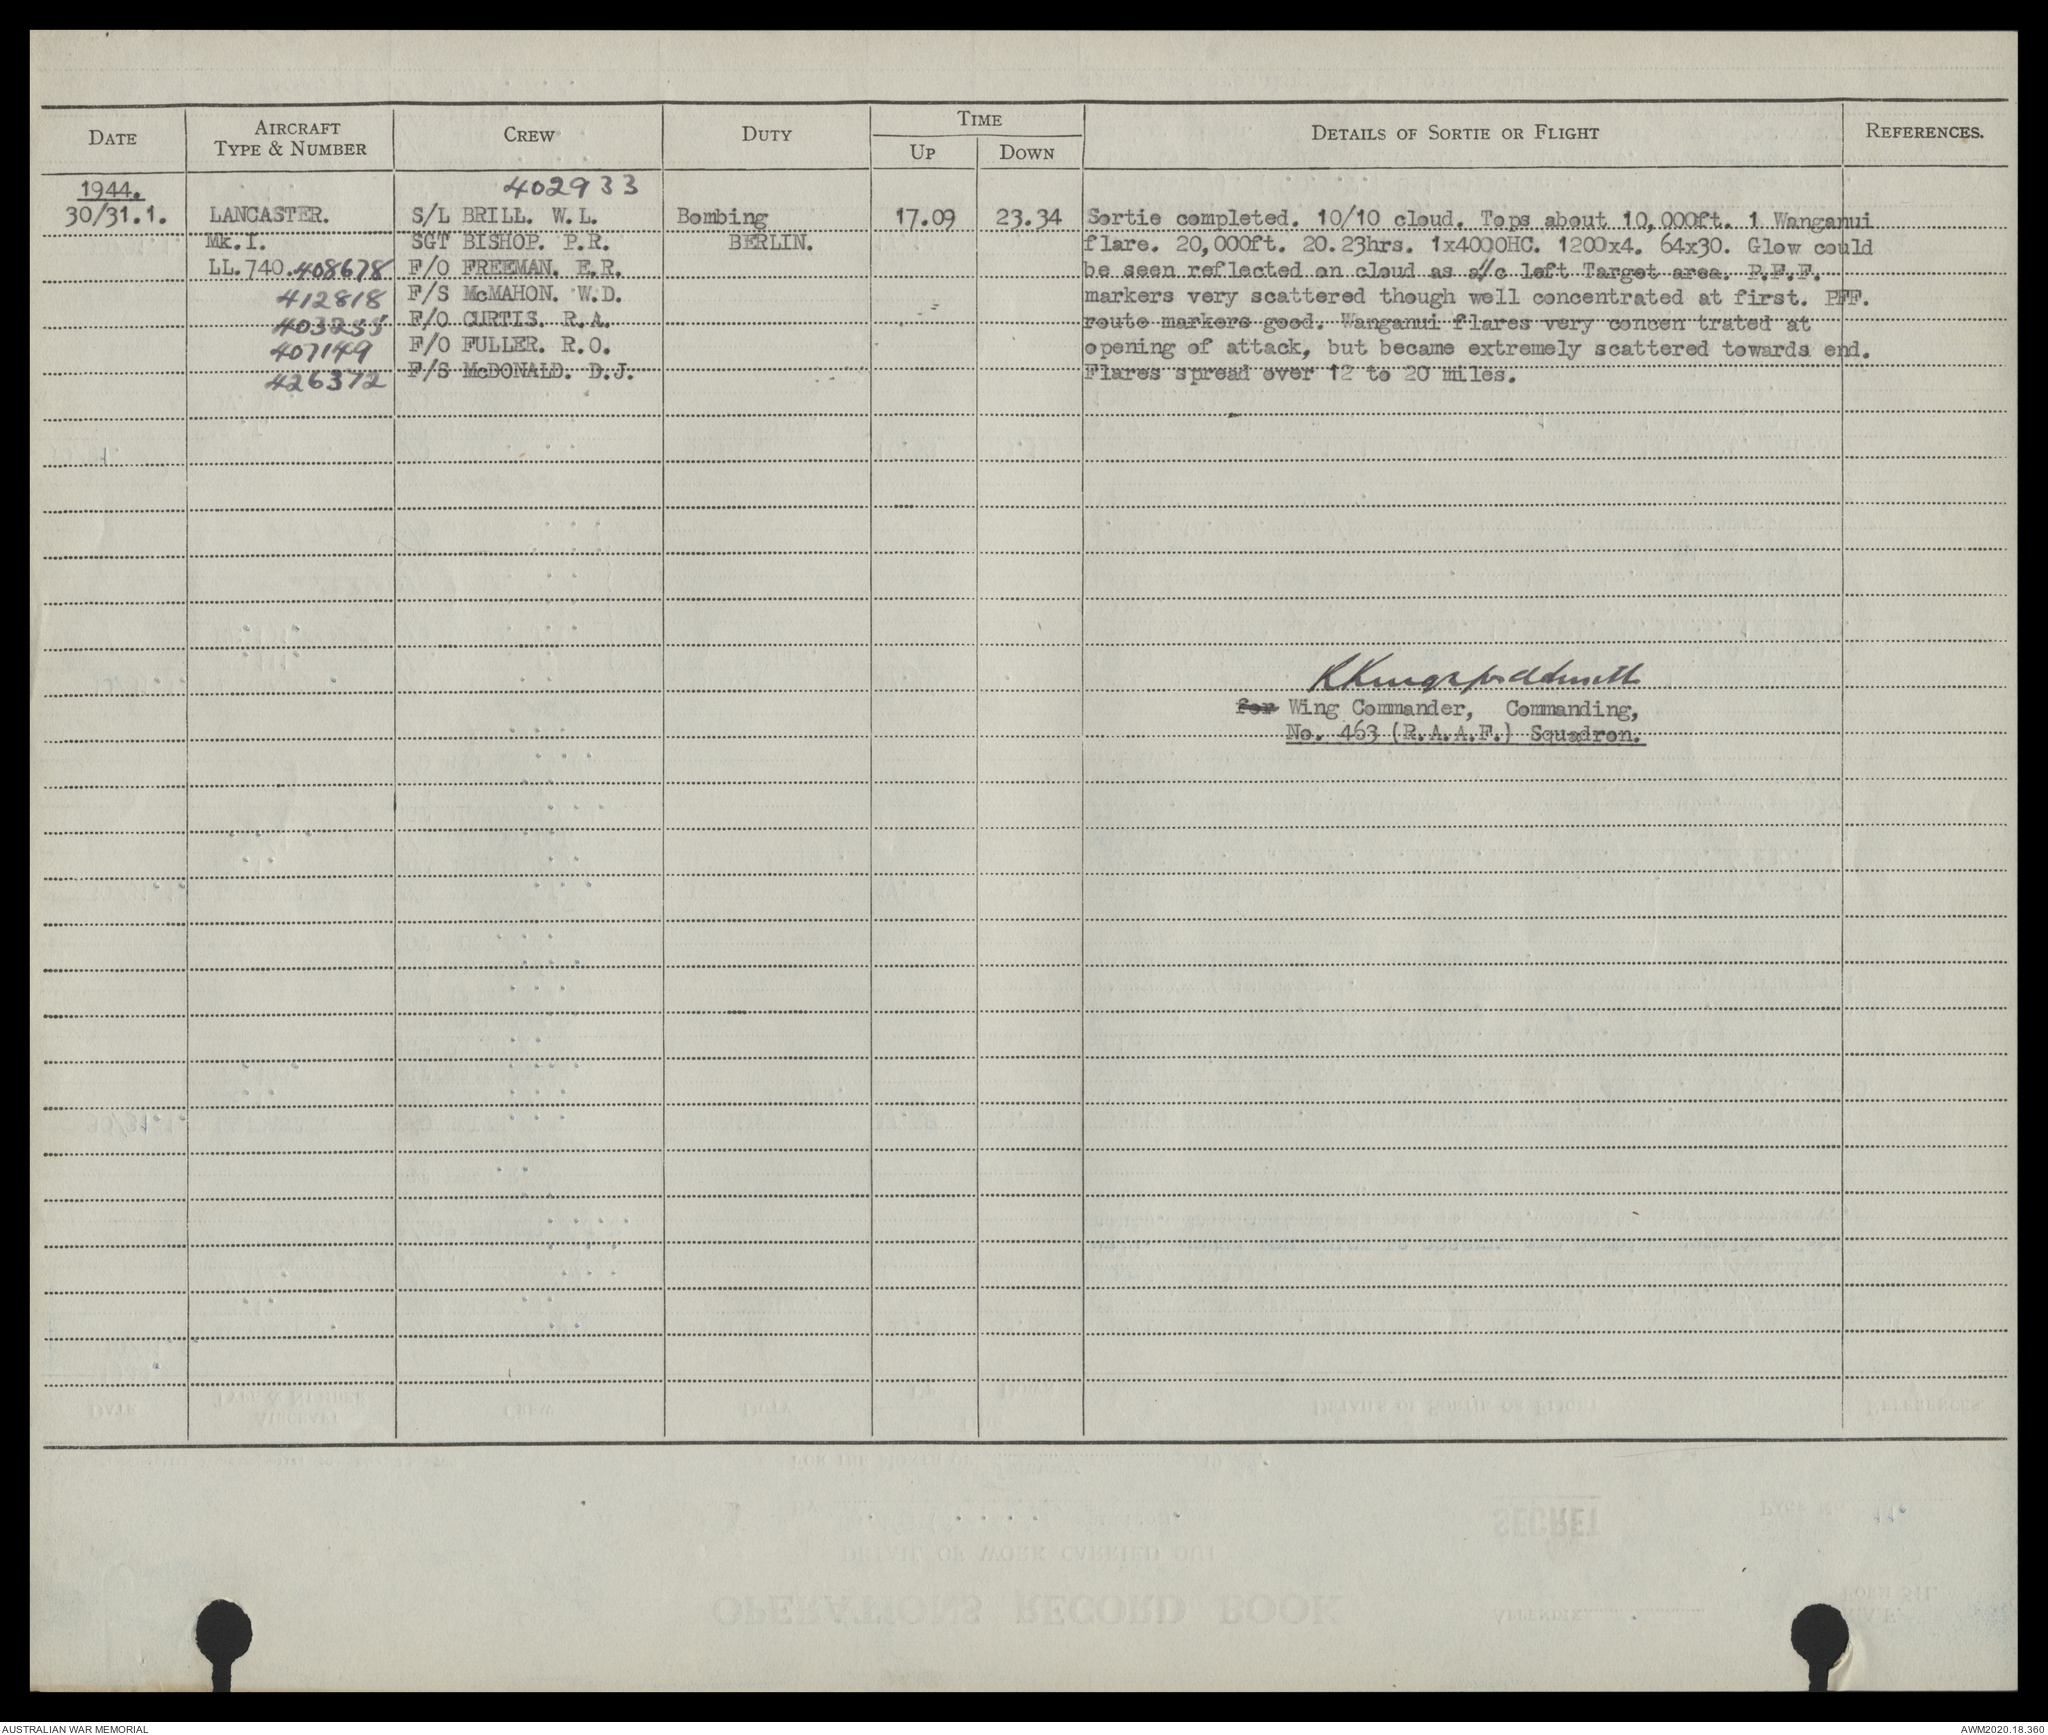 DATE
AIRCRAFT
TYPE & NUMBER
CREW
DUTY
TIME
UP
DOWN
DETAILS OF SORTIE OR FLIGHT
REFERENCES.
1944.
402933
30/31.1. LANCASTER. S/L BRILL. W.L. Bombing 17.09 23.34 Sortie completed. 10/10 cloud. Tops about 10,000ft. 1 Wanganui
Mk.I. SGT BISHOP. P.R. BERLIN. flare. 20,000ft. 20.23hrs. 1x4000HC. 1200x4. 64x30. Glow could
LL.740. 408678 F/O FREEMAN. E.R. be seen reflected on cloud as a/c left Target area. P.F.F.
412818 F/S McMAHON. W.D. markers very scattered though well concentrated at first. PFF.
403255 F/O CURTIS. R.A. route markers good. Wanganui flares very concen trated at
407149 F/O FULLER. R.O. opening of attack, but became extremely scattered towards end.
426372 F/S McDONALD. D.J. Flares spread over 12 to 20 miles.
RKingsfordsmith
for Wing Commander, Commanding,
No. 463 (R.A.A.F.) Squadron.
AUSTRALIAN WAR MEMORIAL
AWM2020.18.360